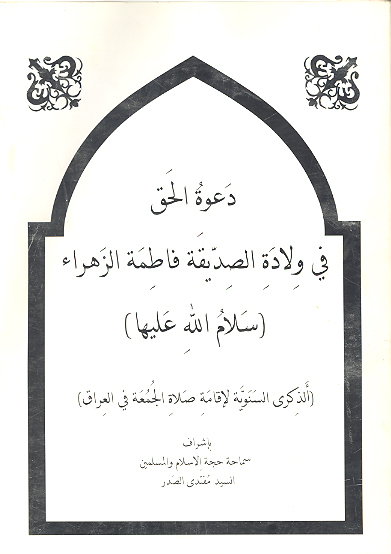 دَعوةُ الحَق
في وِلادَةِ الصِدّيقَةِ فاطِمَة الزَهراء
(سَلامُ اللهِ عَليها)
(ألذِكرى السَنَويَّة لإقامَةِ صَلاةِ الجُمُعَة في العِراق)
بإشراف
سماحة حجة الاسلام والمسلمين
السيد مُقتدى الصَدر